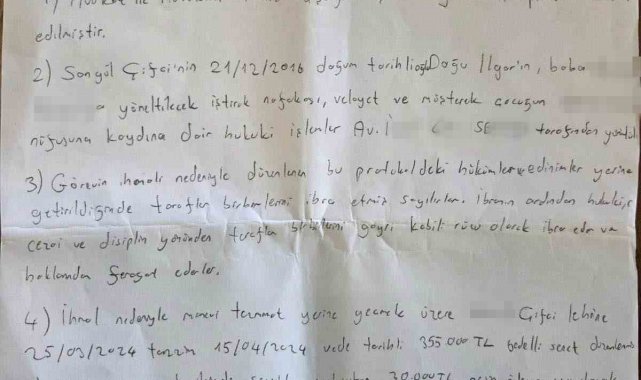 edilmiştir.
2) Songül Çifci'nin 21/12/2016 doğum tarihli oğlu Doğu Ilgar'ın, baba
a yöneltilecek iştirak nafakası, velayet ve müşterek çocuğun
nüfusuna kaydına dair hukuki işlemler Av. İ SE tarafından
3) Görevin ihmali nedeniyle düzenlenen bu protokoldeki hükümler ve edinimler yerine
getirildiğinde taraflar birbirlerini ibra etmiş sayılırlar. İbranın ardından hukuki,
cezai ve disiplin yönünden taraflar birbirlerini gayri kabili rücu olarak ibra eder ve
haklarından feragat ederler.
4) İhmal nedeniyle manevi tazminat yerine geçmek üzere Çifci lehine
25/03/2024 tanzim 15/04/2024 vade tarihli 355.000 TL bedelli senet düzenlenmiş
30.000 TL